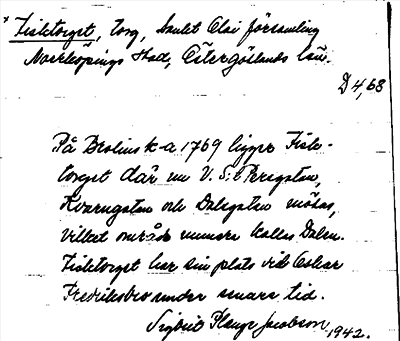 * Fisktorget, torg, Sankt Olai församling
Norrköpings stad, Östergötlands län.
D 4,68
På Brolins k-a 1769 ligger Fisk-
torget där nu V. S:t Persgatan,
Kvarngatan och Dalsgatan mötas,
vilket område numera kallas Dalen.
Fisktorget har sin plats vid Oskar
Fredriksbro under senare tid.
Sigbrit Plange Jacobson 1942.